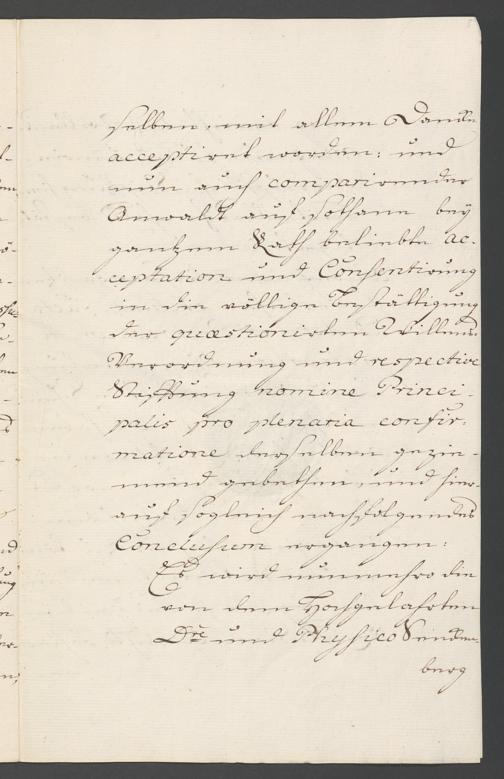 selben, mit allem Dancke
acceptiret worden; und
nun auch comparirender
Anwaldt auf sothane bey
gantzem Rath beliebte ac-
ceptation und Consentirung
in die völlige Bestättigung
der quæstionirten Willens
Verordnung und respective
Stifftung nomine Princi-
palis pro plenaria confir-
matione derselben gezie-
mend gebethen, und hier-
auf sogleich nachfolgendes
Conclusum ergangen:
Es wird nunmehro die
von dem Hochgelahrten
Dre und Physico Sencken-
berg